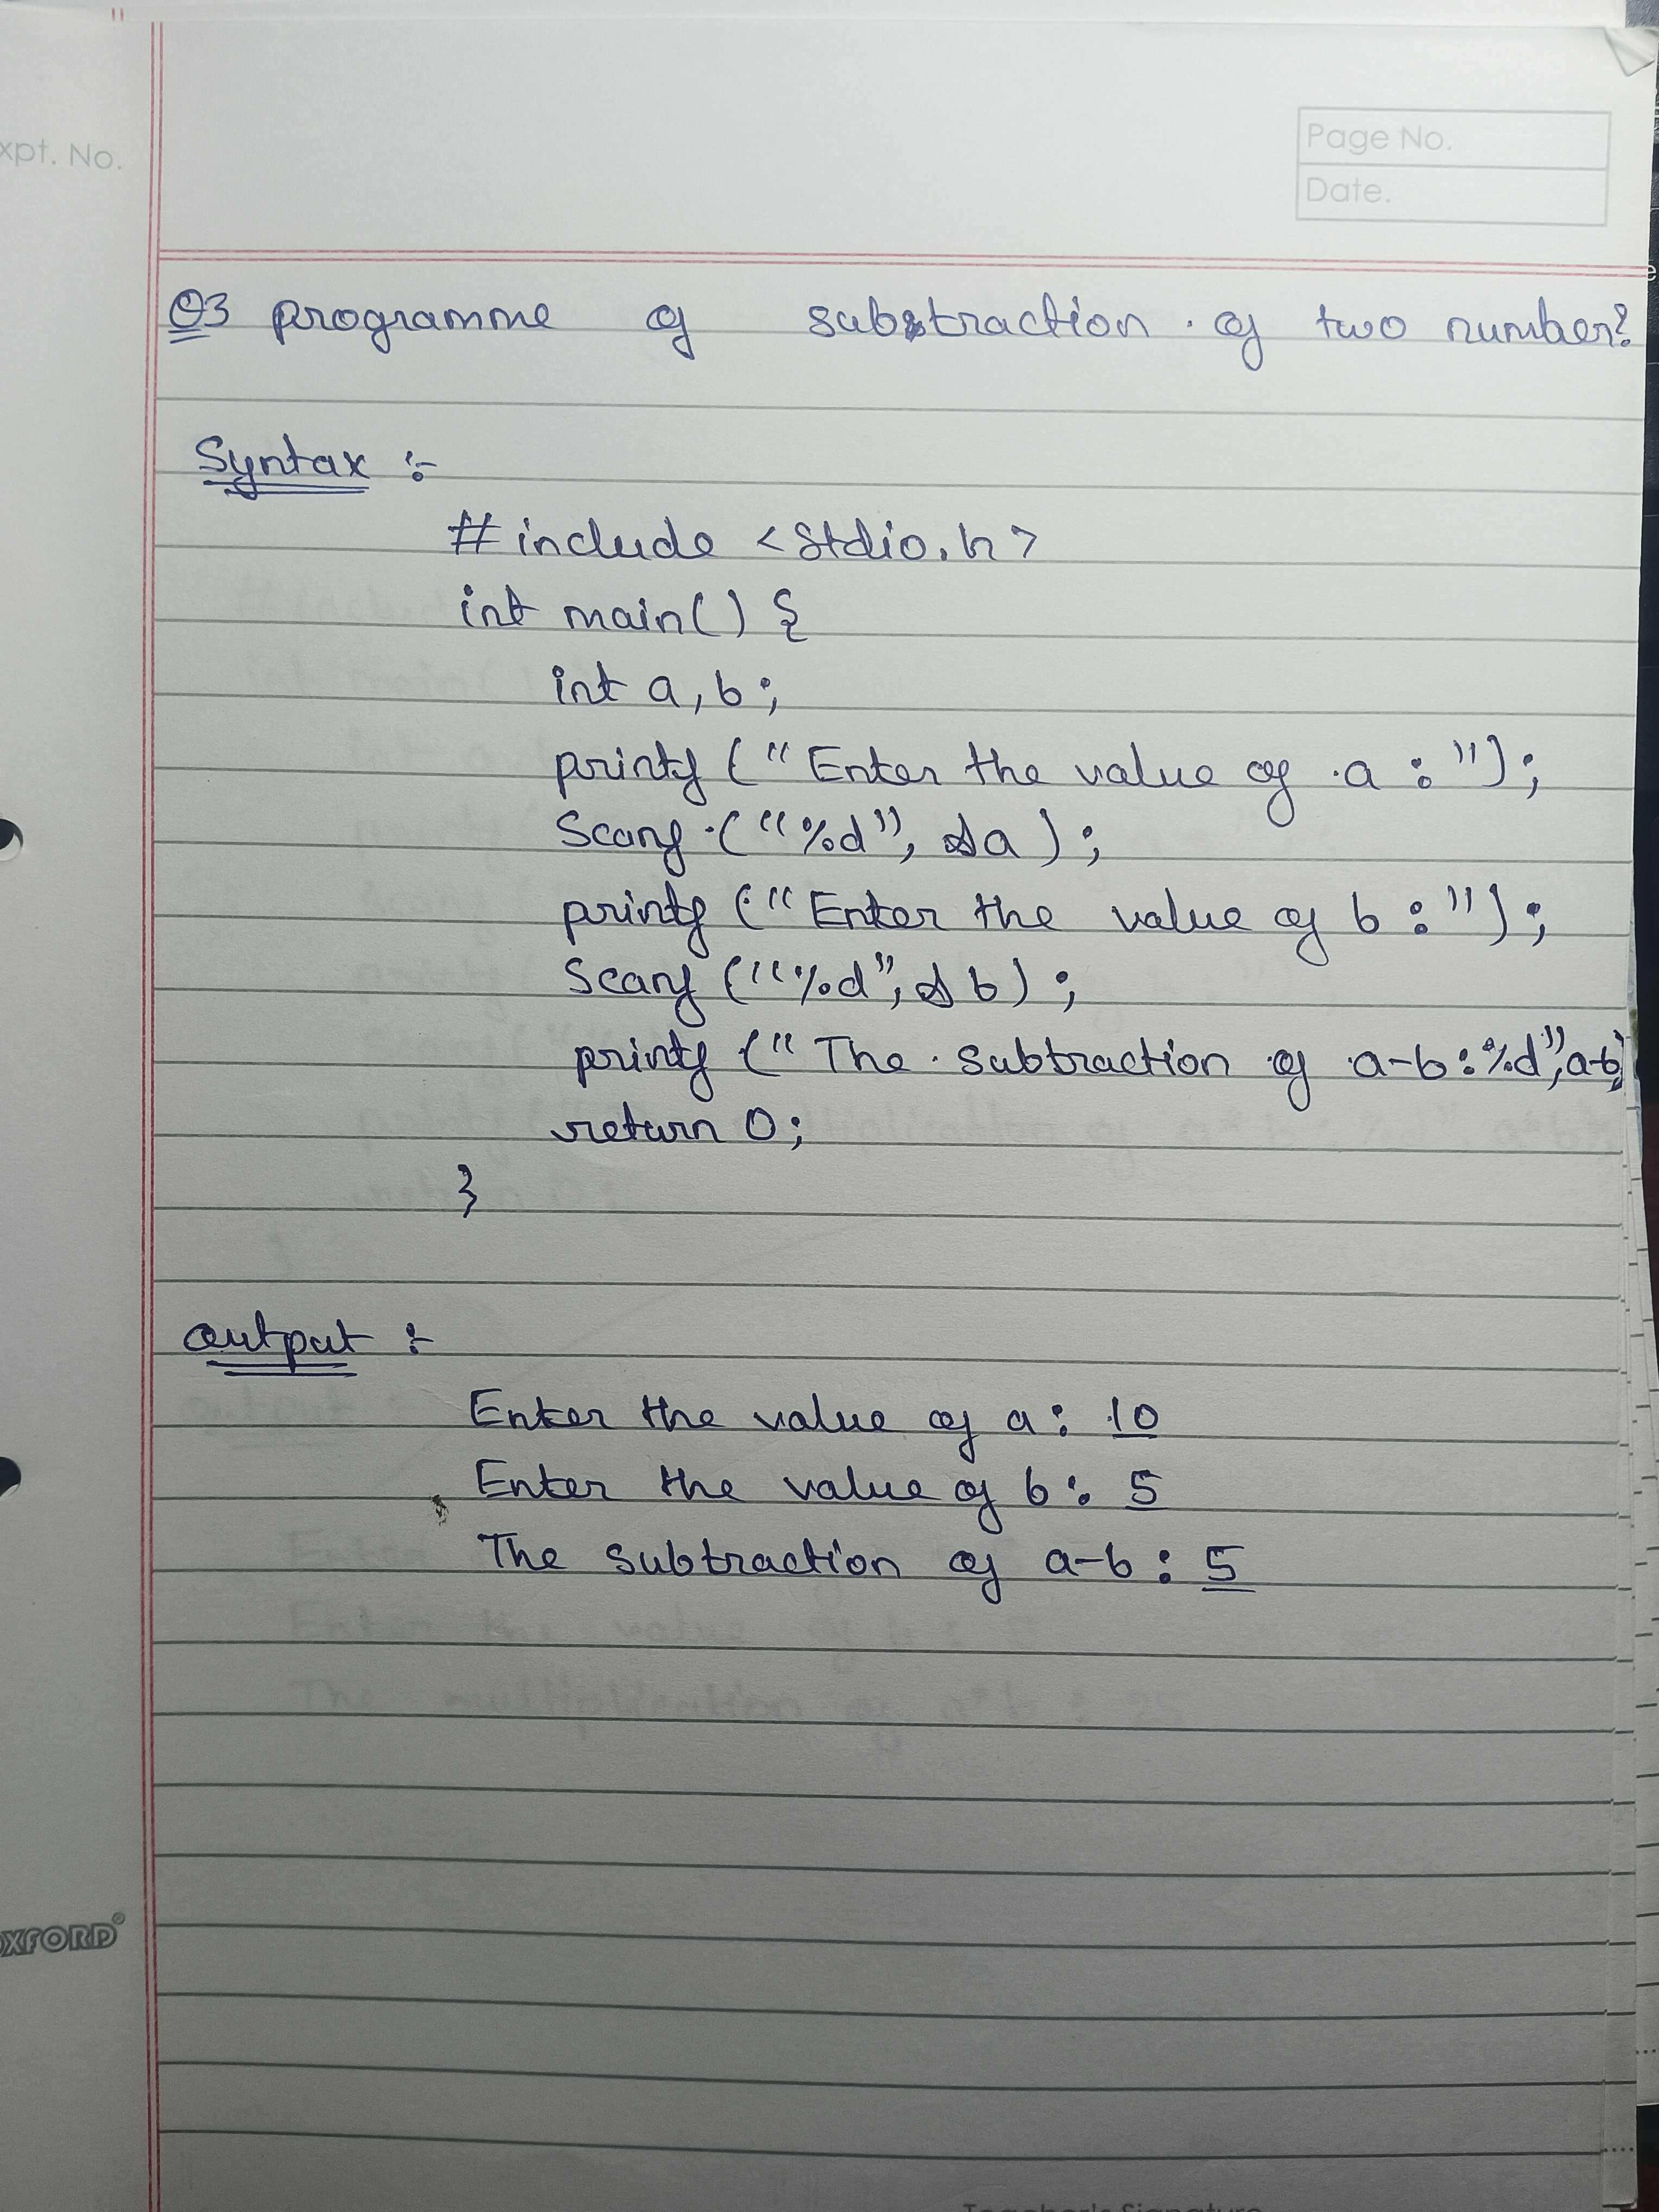 xpt. No.
Page No.
Date.
Q3 programme of subtraction of two number?
Syntax :-
#include <stdio.h>
int main() {
int a, b;
printf ("Enter the value of a : ");
Scanf ("%d", &a);
printf ("Enter the value of b : ");
Scanf ("%d", &b);
printf (" The subtraction of a-b : %d", a-b)
return 0;
}
output :-
Enter the value of a : 10
Enter the value of b : 5
The subtraction of a-b : 5
OXFORD
Teacher's Signature